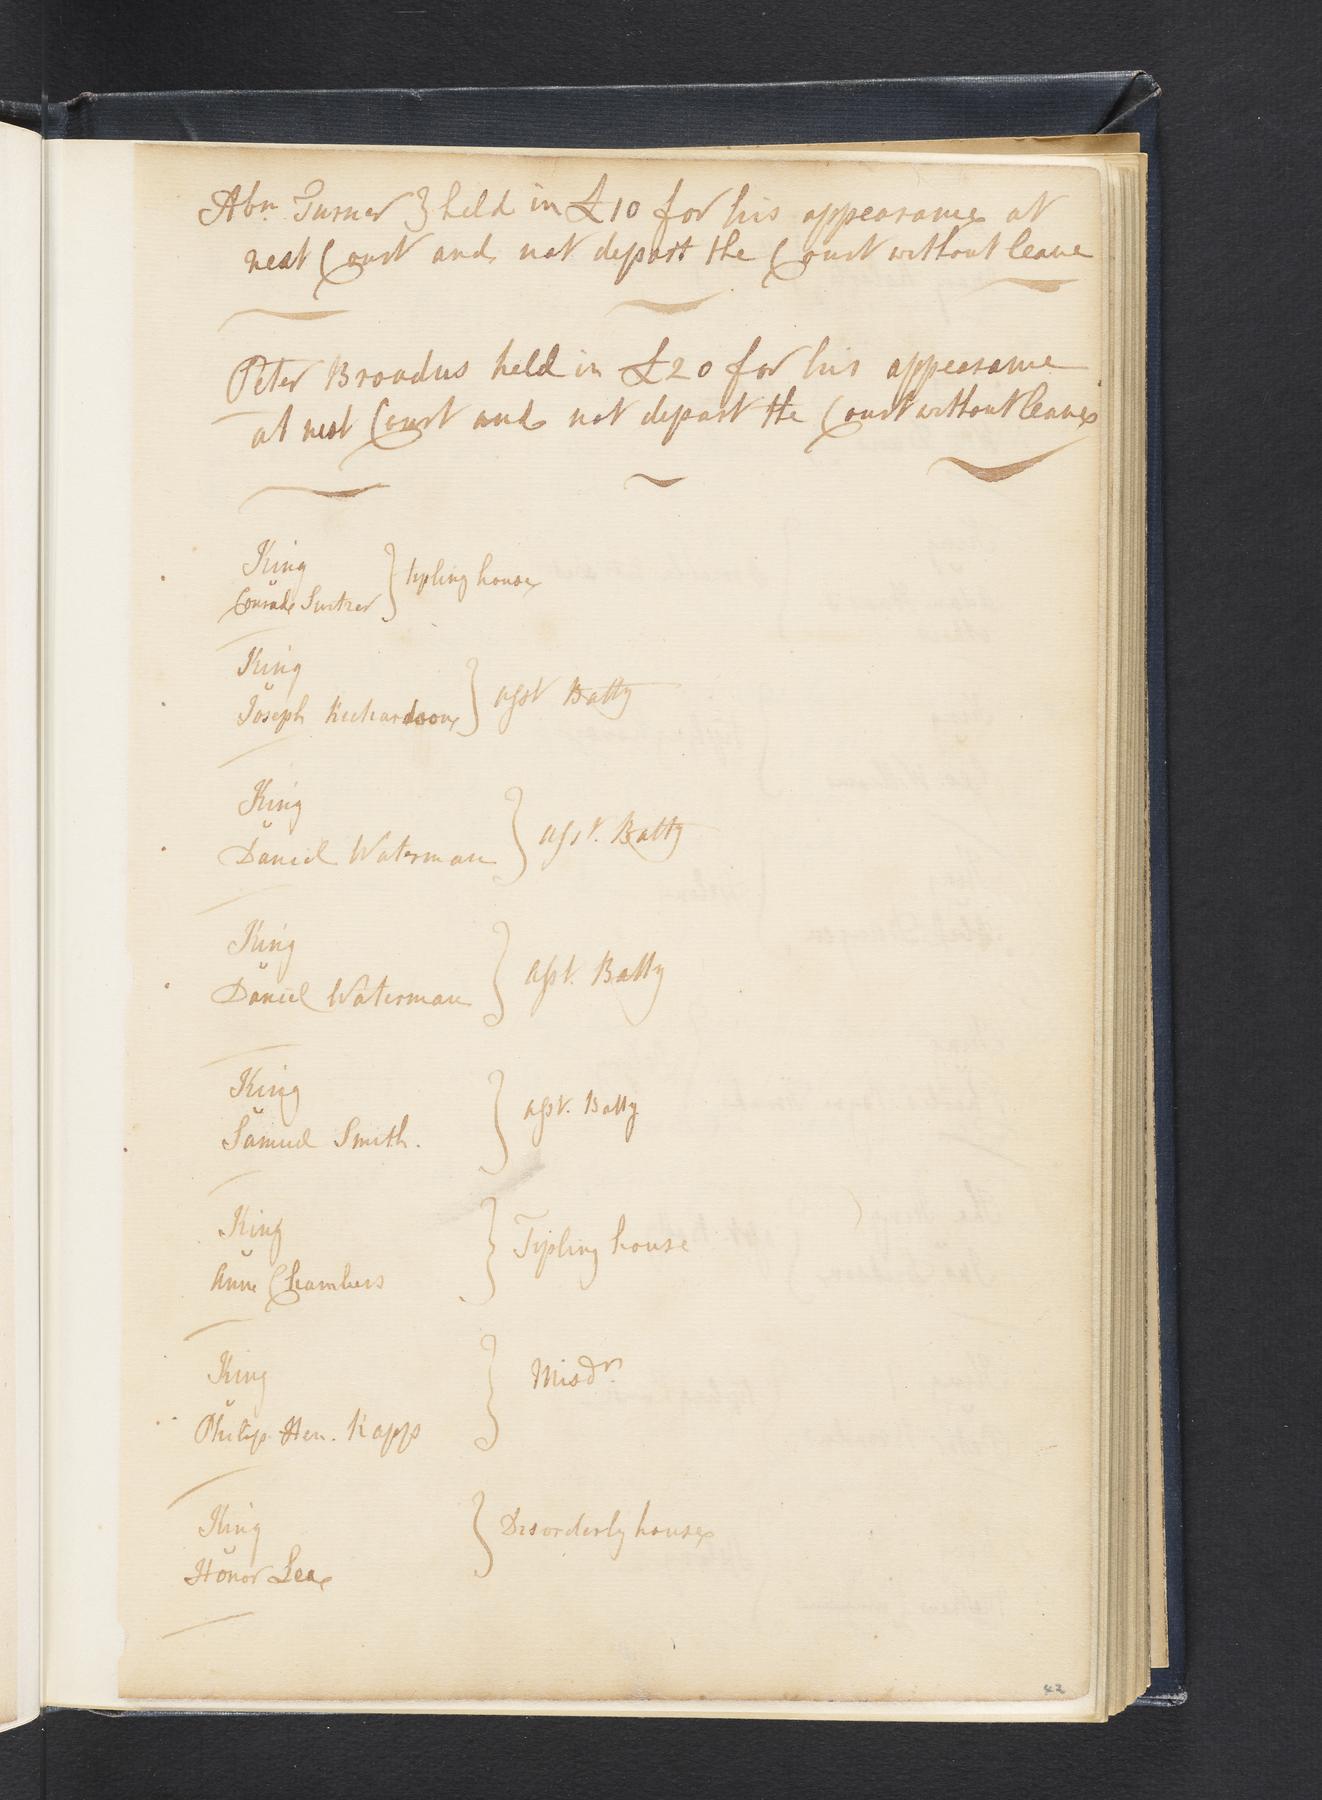 Abm. Turner } held in £10 for his appearance at
next Court and not depart the Court without leave
Peter Broadus held in £20 for his appearance
at next Court and not depart the Court without leave
King
v
Conrade Switzer } tipling house
King
v
Joseph Richardson } asst Batty
King
v
Daniel Waterman } asst. Batty
King
v
Daniel Waterman } asst. Batty
King
v
Samuel Smith. } asst. Batty
King
v
Anne Chambers } Tipling house
King
v
Philip Hen. Kapps } Misdr.
King
v
Honor Lea } Disorderly house
42